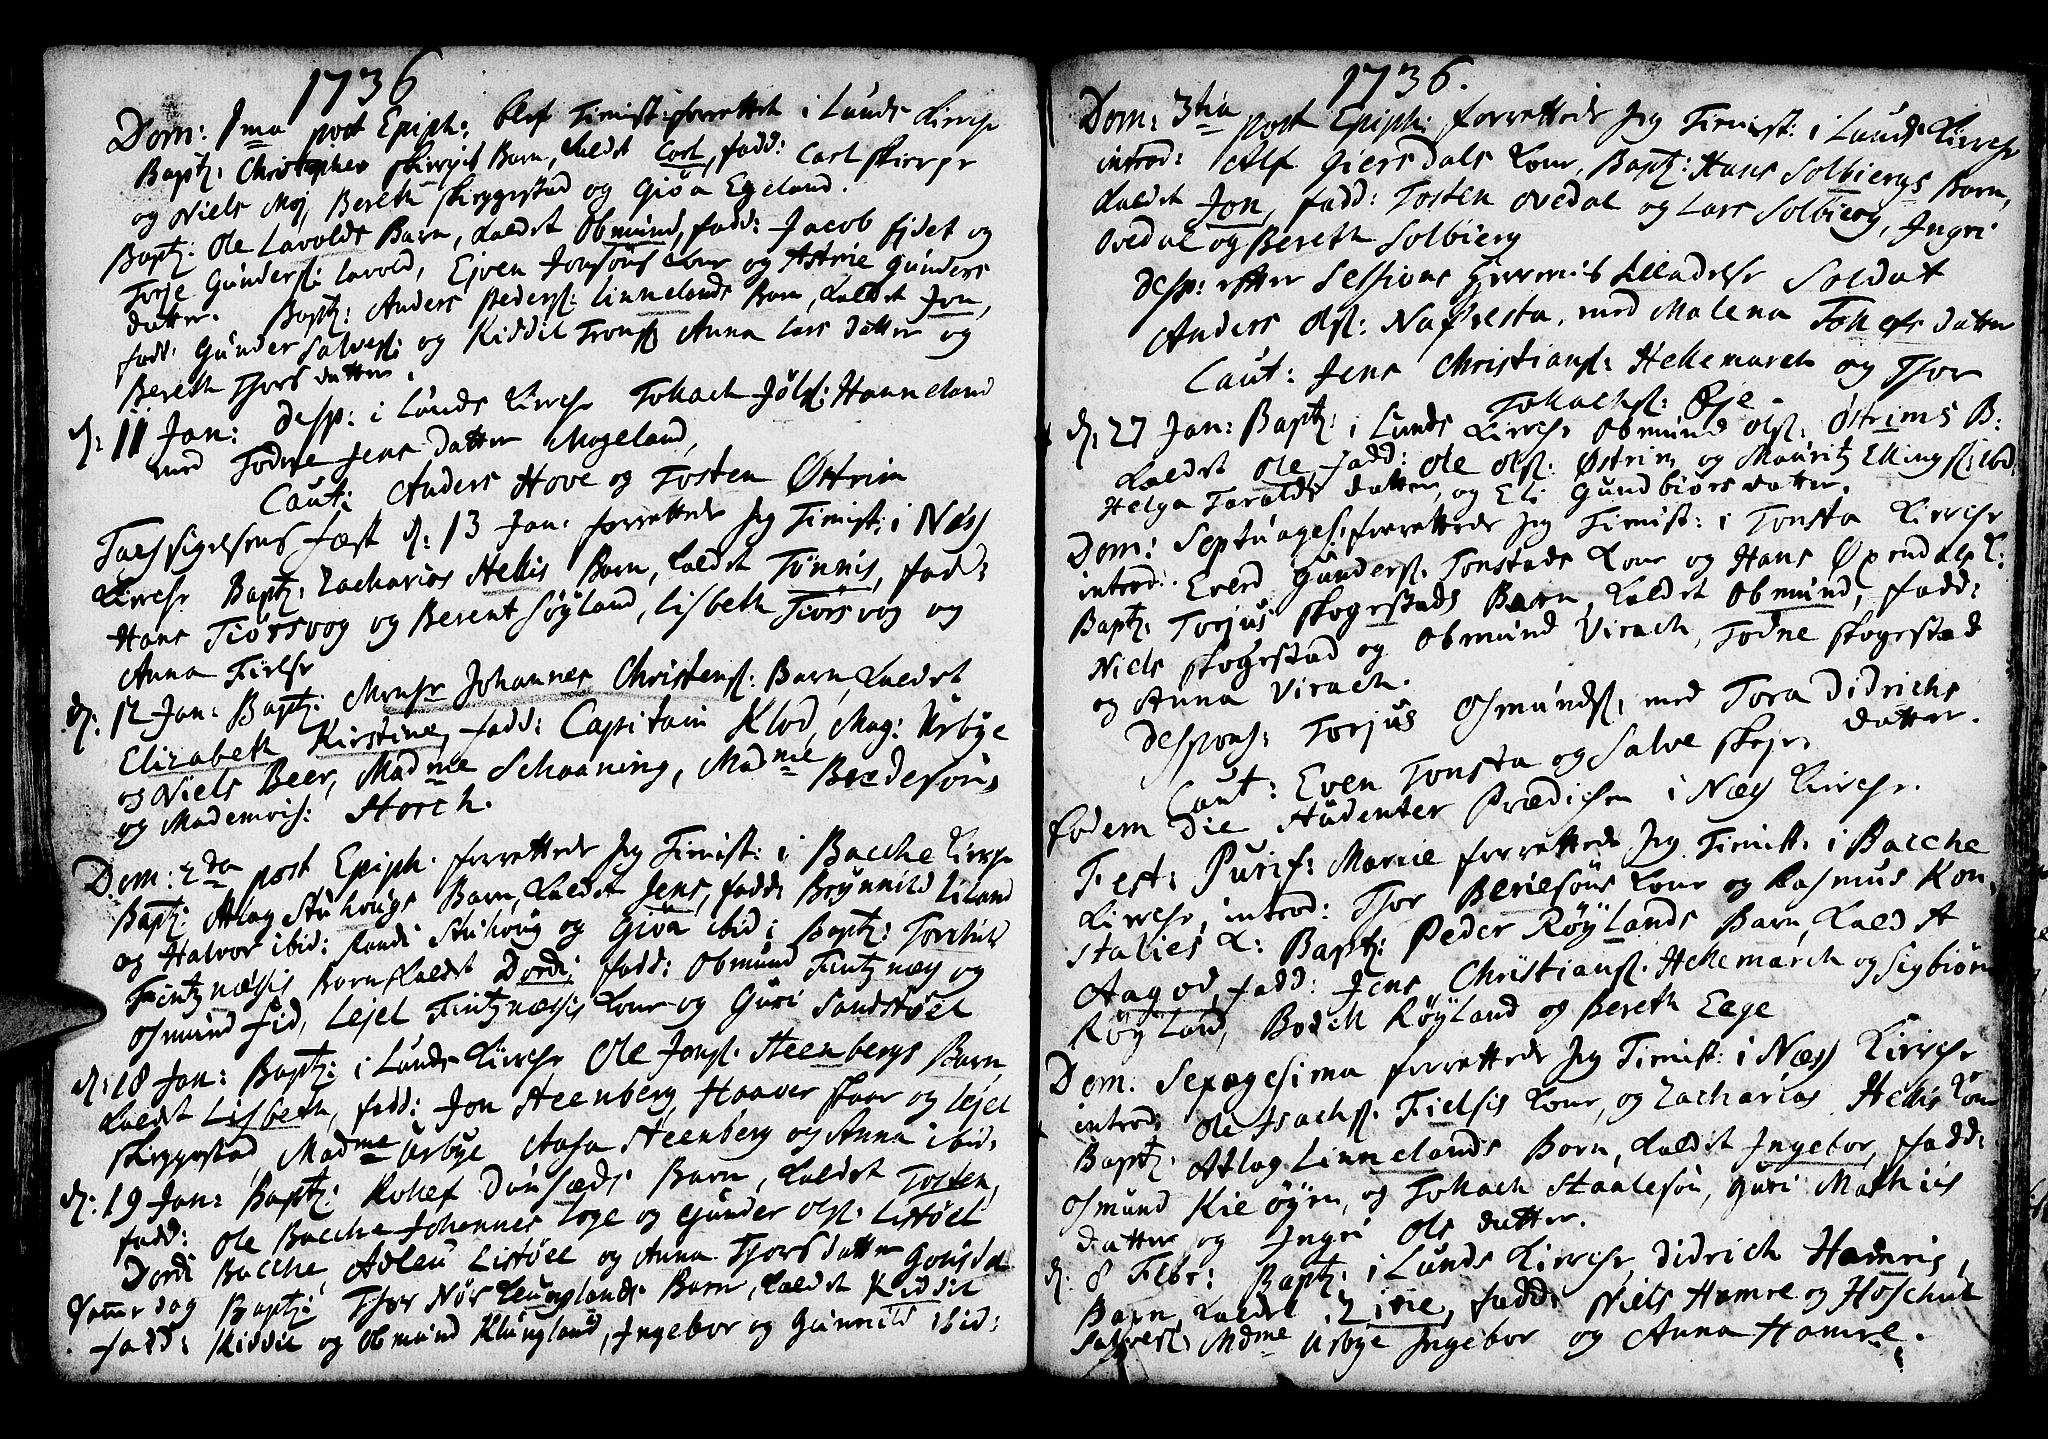 1736
Dom: 1ma post Epiph: blef Tienist: forrettet i Lunds Kirche
Bapt: Christopher Skiergis Barn, kaldet Carl, fadd: Carl Skierpe
og Niels Moj, Bereth Skryggestad og Giøa Egeland.
Bapt: Ole Lavolds Barn, kaldet Obmund, fadd: Jacob fidet og
Torje Gunders: lavold, Ejven Jonsøns Kone og Astrie Gunders
datter. Bapt: Anders Peders: Linnelands Barn, kaldet Jon,
fadd: Gunder Salves: og Kiddil Trons: Anna Lars datter og
Bereth Thors datter.
d: 11 Jan: desp: i Lunds Kirche Tollach Jøls: Hanneland
med Todne Jens datter Mogeland,
Caut: Anders Hove og Tosten Østrim
Tachsigelsens fæst d: 13 Jan: forrettede Jeg Tienist: i Næss
Kirche Bapt: Zacharias Hellis Barn, kaldet Tønnis, fadd:
Hans Tiørsvog og Berent Søyland, Lisbeth Tiorsvog og
Anna Fielse
d: 12 Jan: Bapt: Monsr Johannes Christens: Barn, kaldet
Elizabeth Kirstine, fadd: Capitain Klod, Mag: Urbye
og Niels Beer, Madme Schaaning, Madme Bredesøns
og Mademois: Storch.
Dom: 2da post Epiph: forrettede Jeg Tienist: i Bacche Kirche
Bapt: Atlag Stuhougs Barn, kaldet Jens, fadd: Brynnild Liland
og Halvor ibid: Randi Stuhoug og Giøa ibid: Bapt: Torchild
Fintznæsis Barn kaldet Dordi, fadd: Obmund Fintznæs og
Osmund fid, Lejel Fintznæsis Kone og Guri Sandstøel
d: 18 Jan: Bapt: i Lunds Kirche Ole Jons: Steenbergs Barn,
kaldet Lisbeth, fadd: Jon Steenberg, Haaver Skaar og Lejel
Skryggestad, Madme Urbye Aasa Steenberg og Anna ibid:
d: 19 Jan: Bapt: Rollef Dunsæds Barn, kaldet Tosten,
fadd: Ole Bacche Johannes Loge og Gunder Ols: Listøel
Dordi Bacche, Adleu Listøel og Anna Thorsdatter Gousdal
samme dag Bapt: Thor Nør Klunglands Barn, kaldet Kiddil
fadd: Kiddil og Obmund Klungland, Ingebor og Gunnild ibid:
1736.
Dom: 3tia post Epiph: forrettede Jeg Tienist: i Lunds Kirche
introd: Alf Giersdals Kone, Bapt: Hans Solbiergs Barn,
kaldet Jon, fadd: Tosten Ovedal og Lars Solbierg, Ingri
Ovedal og Bereth Solbierg
desp: efter Sessions Herrernis tilladelse Soldat
Anders Ols: Nafresta, med Malena Tollefs datter
Caut: Jens Christians: Hellemarch og Thor
Tollachs: Øje
d: 27 Jan: Bapt: i Lunds Kirche Obmund Ols: Østrims B:
kaldet Ole fadd: Ole Ols: Østrim og Mauritz Ellings: ibid:
Helga Taralds datter, og Eli Gundbiørs datter.
Dom: Septuages: forrettede Jeg Tienist: i Tonsta Kirche
introd: Everd Gunders: Tonstads Kone og Hans Øxendals K:
Bapt: Torjus Skogestads Barn, kaldet Obmund, fadd:
Niels Skogestad og Obmund Virach, Todne Skogestad
og Anna Virach.
despons: Torjus Osmunds: med Tora Didrichs
datter.
Caut: Even Tonsta og Salve
Eodem Die Studenter Prædichen i Næss Kirche.
Fest: Purif: Mariæ forrettede Jeg Tienist: i Bacche
Kirche, introd: Thor Beriesøns Kone og Rasmus Kon-
stalies K: Bapt: Peder Røylands Barn, kaldet
Aagod, fadd: Jens Christians: Hellemarch og Sigbiørn
Røyland, Bodil Røyland og Bereth Eege
Dom: Sexagesima forrettede Jeg Tienist: i Næss Kirche
introd: Ole Isachs: Fielsis Kone, og Zacharias Hellis Kone
Bapt: Atlag Linnelands Barn, kaldet Ingebor, fadd:
Osmund Kieøyen, og Tollach Staalesøn, Guri Mathius
datter og Ingri Ols datter.
d: 8 Febr: Bapt: i Lunds Kirche, Didrich Hamris,
Barn, kaldet Zirie, fadd: Niels Hamre og Høschul
Salves: Mdme Urbye Ingebor og Anna Hamre.